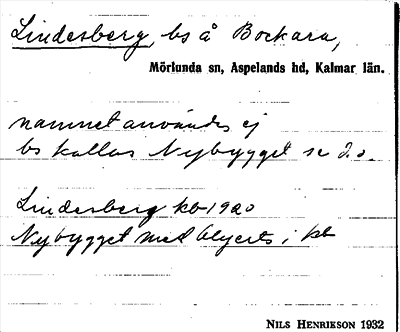 Lindesberg, bs å Bockara,
Mörlunda sn, Aspelands hd, Kalmar län.
namnet användes ej
bs kallas Nybygget se d.o.
Lindesberg kb 1920
Nybygget med blyerts i kb
NILS HENRIKSON 1932